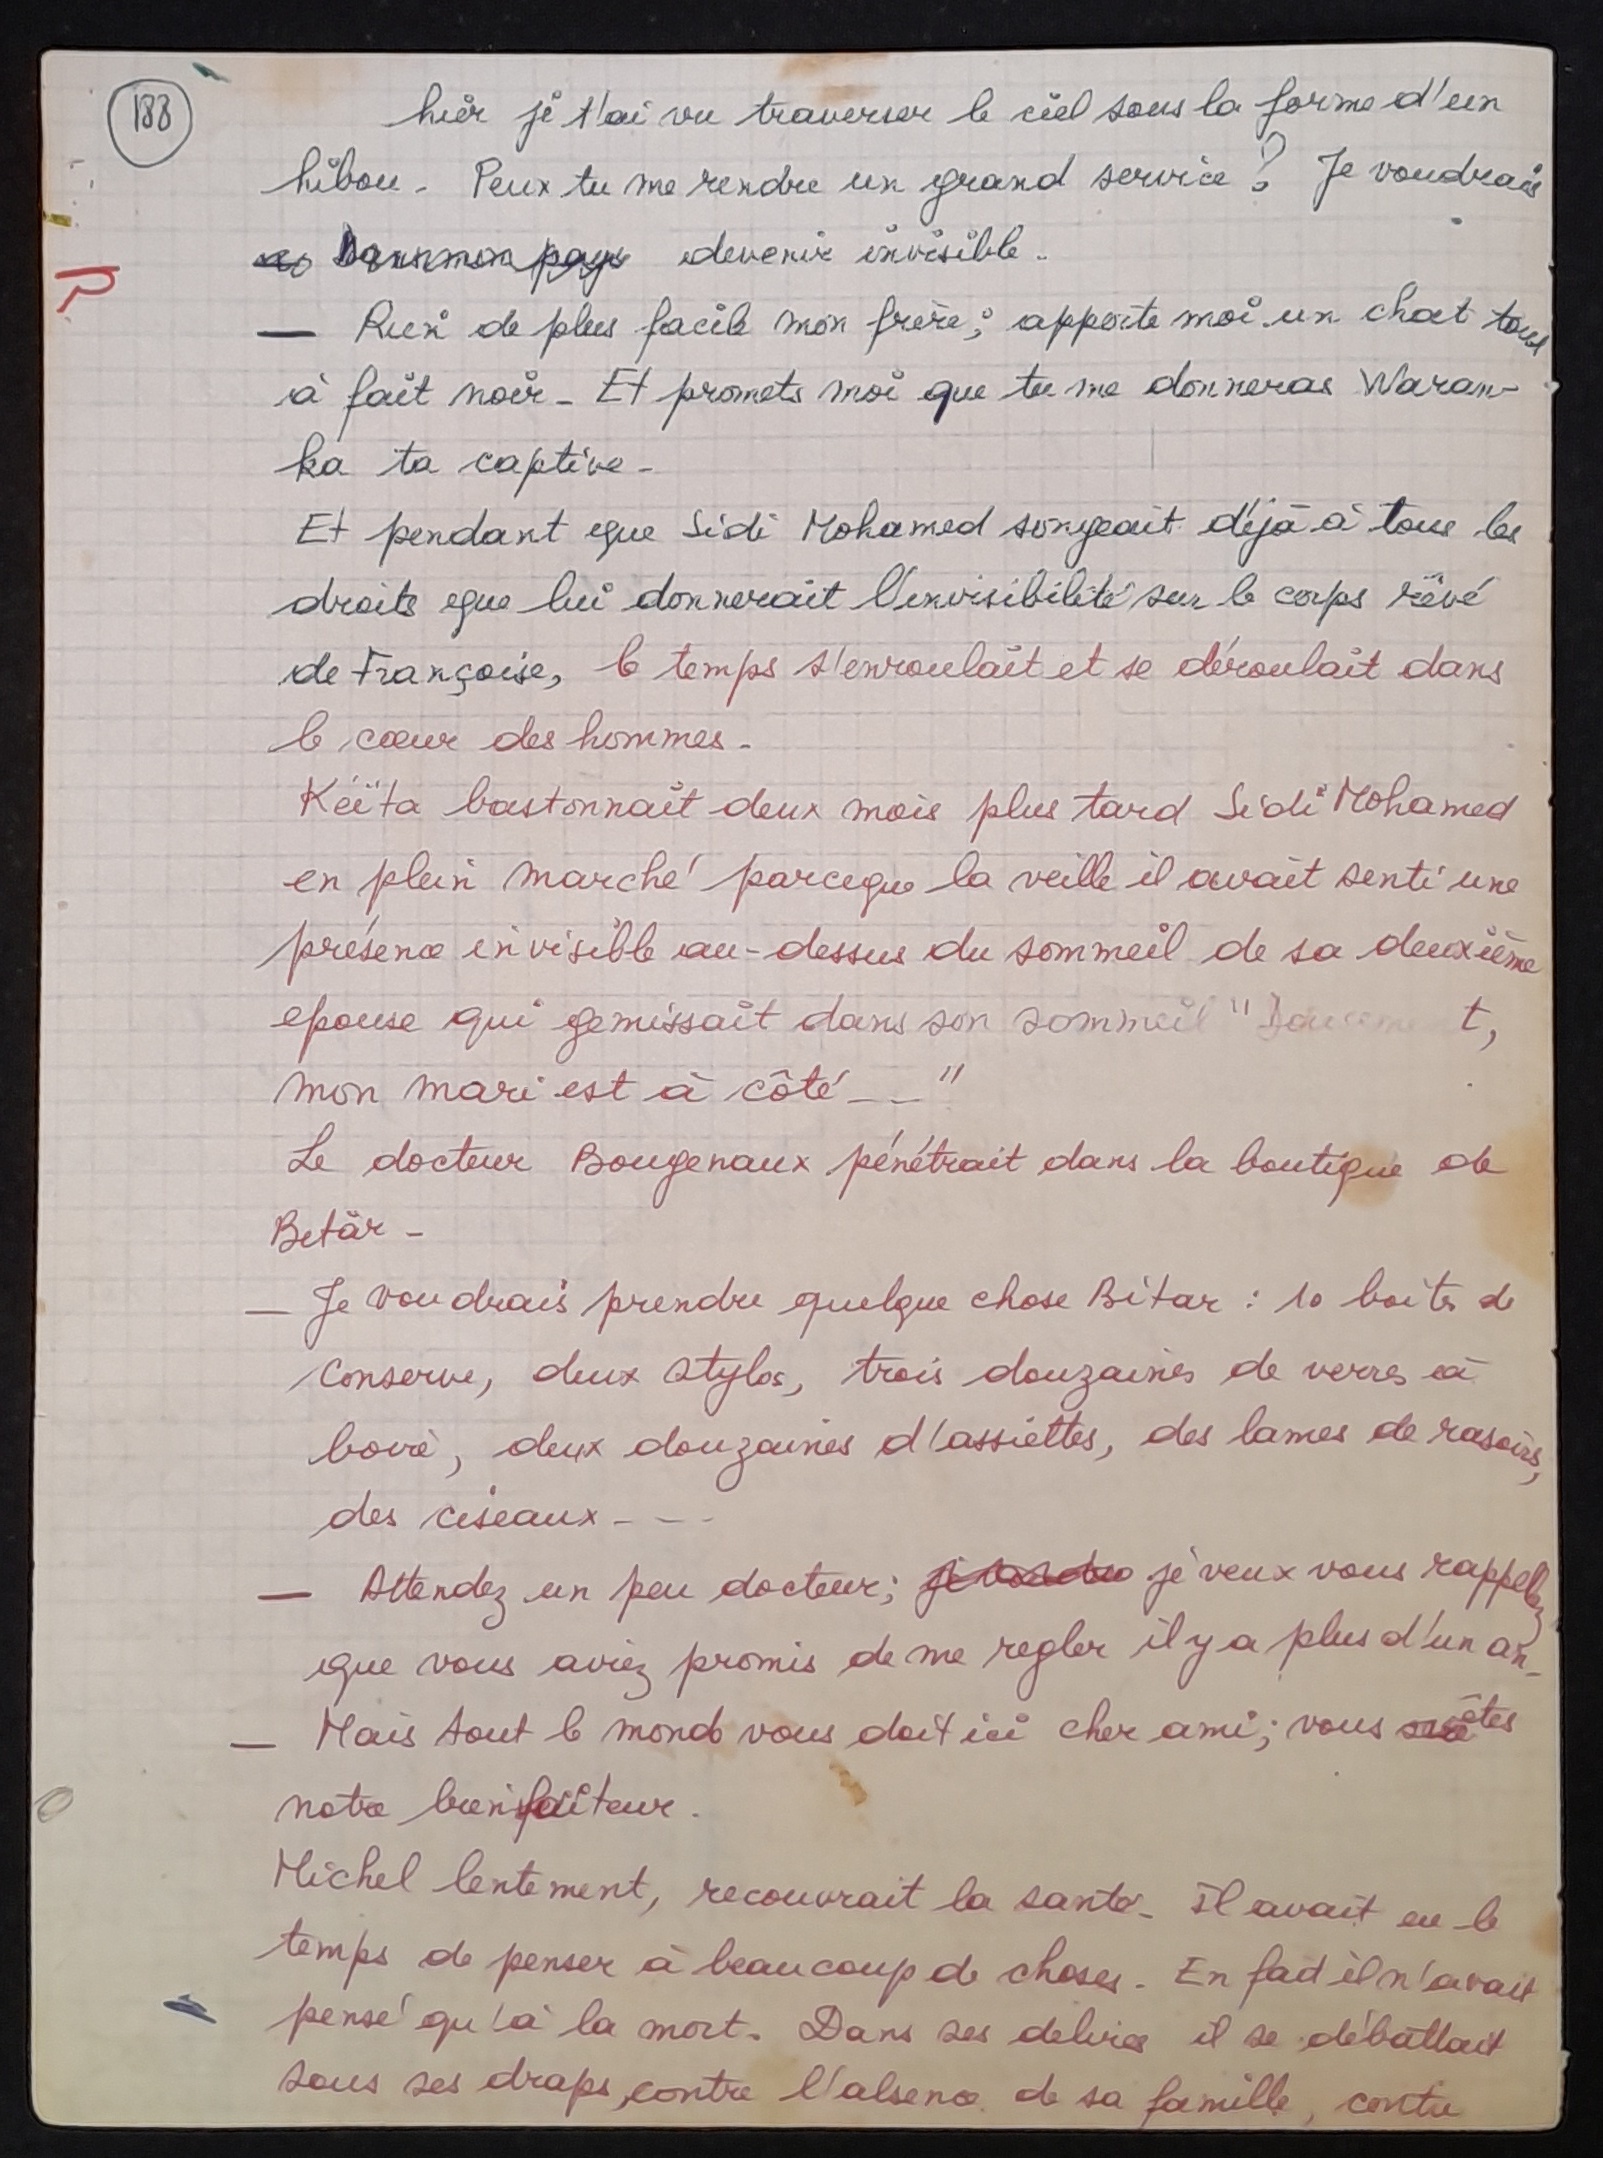 188
hier je t'ai vu traverser le ciel sous la forme d'un
hibou. Peux tu me rendre un grand service ? Je voudrais
Dans mon pays devenir invisible.
— Rien de plus facile mon frère ; apporte moi un chat tout
à fait noir. Et promets moi que tu me donneras Waran-
ka ta captive.
Et pendant que Sidi Mohamed songeait déjà à tous les
droits que lui donnerait l'invisibilité sur le corps rêvé
de Françoise, le temps s'enroulait et se déroulait dans
le cœur des hommes.
Kéïta bastonnait deux mois plus tard Sidi Mohamed
en plein marché parceque la veille il avait senti une
présence invisible au-dessus du sommeil de sa deuxième
epouse qui gemissait dans son sommeil "Doucement,
mon mari est à côté ..."
Le docteur Bougenaux pénétrait dans la boutique de
Betar.
— Je voudrais prendre quelque chose Bitar : 10 boites de
conserve, deux stylos, trois douzaines de verres à
boire, deux douzaines d'assiettes, des lames de rasoirs,
des ciseaux ...
— Attendez un peu docteur ; je veux vous rappelez
que vous aviez promis de me regler il y a plus d'un an.
— Mais tout le monde vous doit ici cher ami ; vous êtes
notre bienfaiteur.
Michel lentement, recouvrait la santé. Il avait eu le
temps de penser à beaucoup de choses. En fait il n'avait
pensé qu'à la mort. Dans ses delires il se débattait
sous ses draps, contre l'absence de sa famille, contre